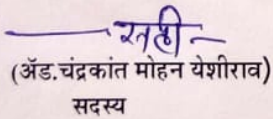 सही
(ॲड.चंद्रकांत मोहन येशीराव)
सदस्य